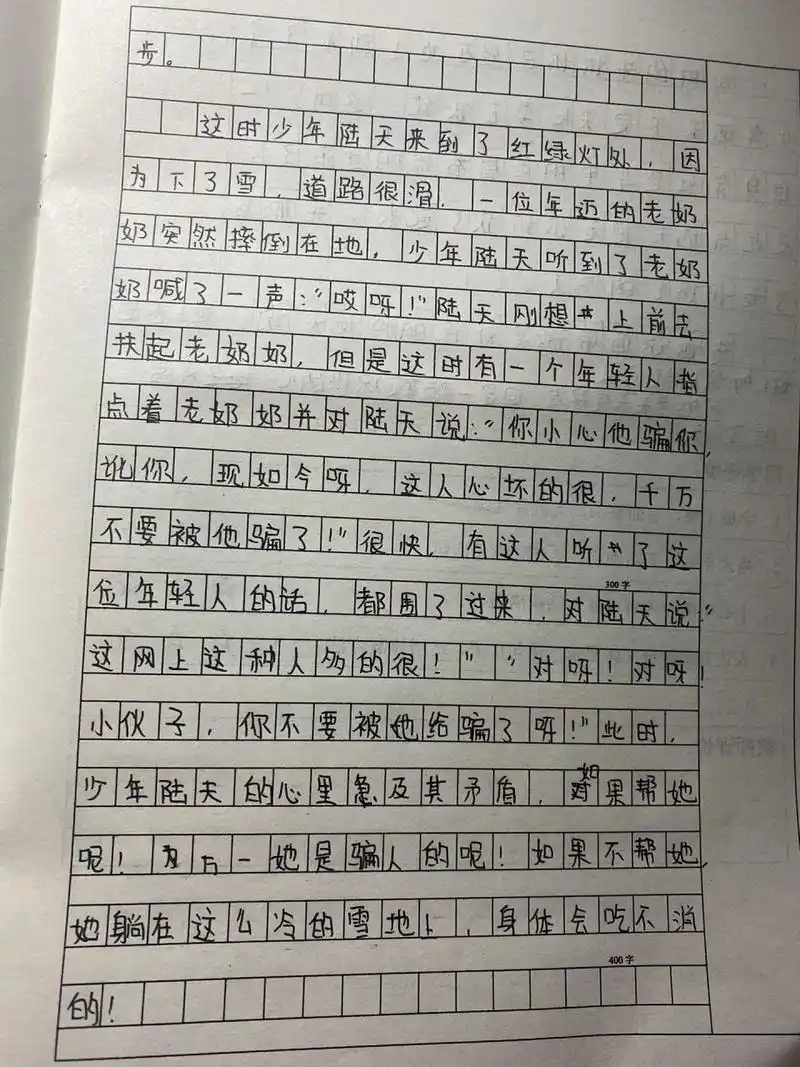 步。
这时少年陆天来到了红绿灯处，因
为下了雪，道路很滑，一位年迈的老奶
奶突然摔倒在地，少年陆天听到了老奶
奶喊了一声：“哎呀！”陆天刚想上前去
扶起老奶奶，但是这时有一个年轻人指
点着老奶奶并对陆天说：“你小心他骗你，
讹你，现如今呀，这人心坏的很，千万
不要被他骗了！”很快，有这人听了这
300字
位年轻人的话，都围了过来，对陆天说：“
这网上这种人多的很！”“对呀！对呀！
小伙子，你不要被她给骗了呀！”此时，
少年陆天的心里急及其矛盾，如果帮她
呢！万一她是骗人的呢！如果不帮她，
她躺在这么冷的雪地上，身体会吃不消
400字
的！